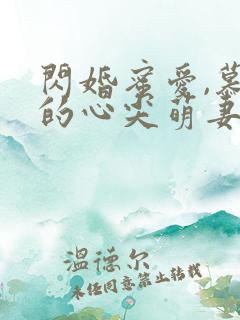 閃婚蜜愛,慕
的心尖萌妻
溫德尔
未经同意禁止转载